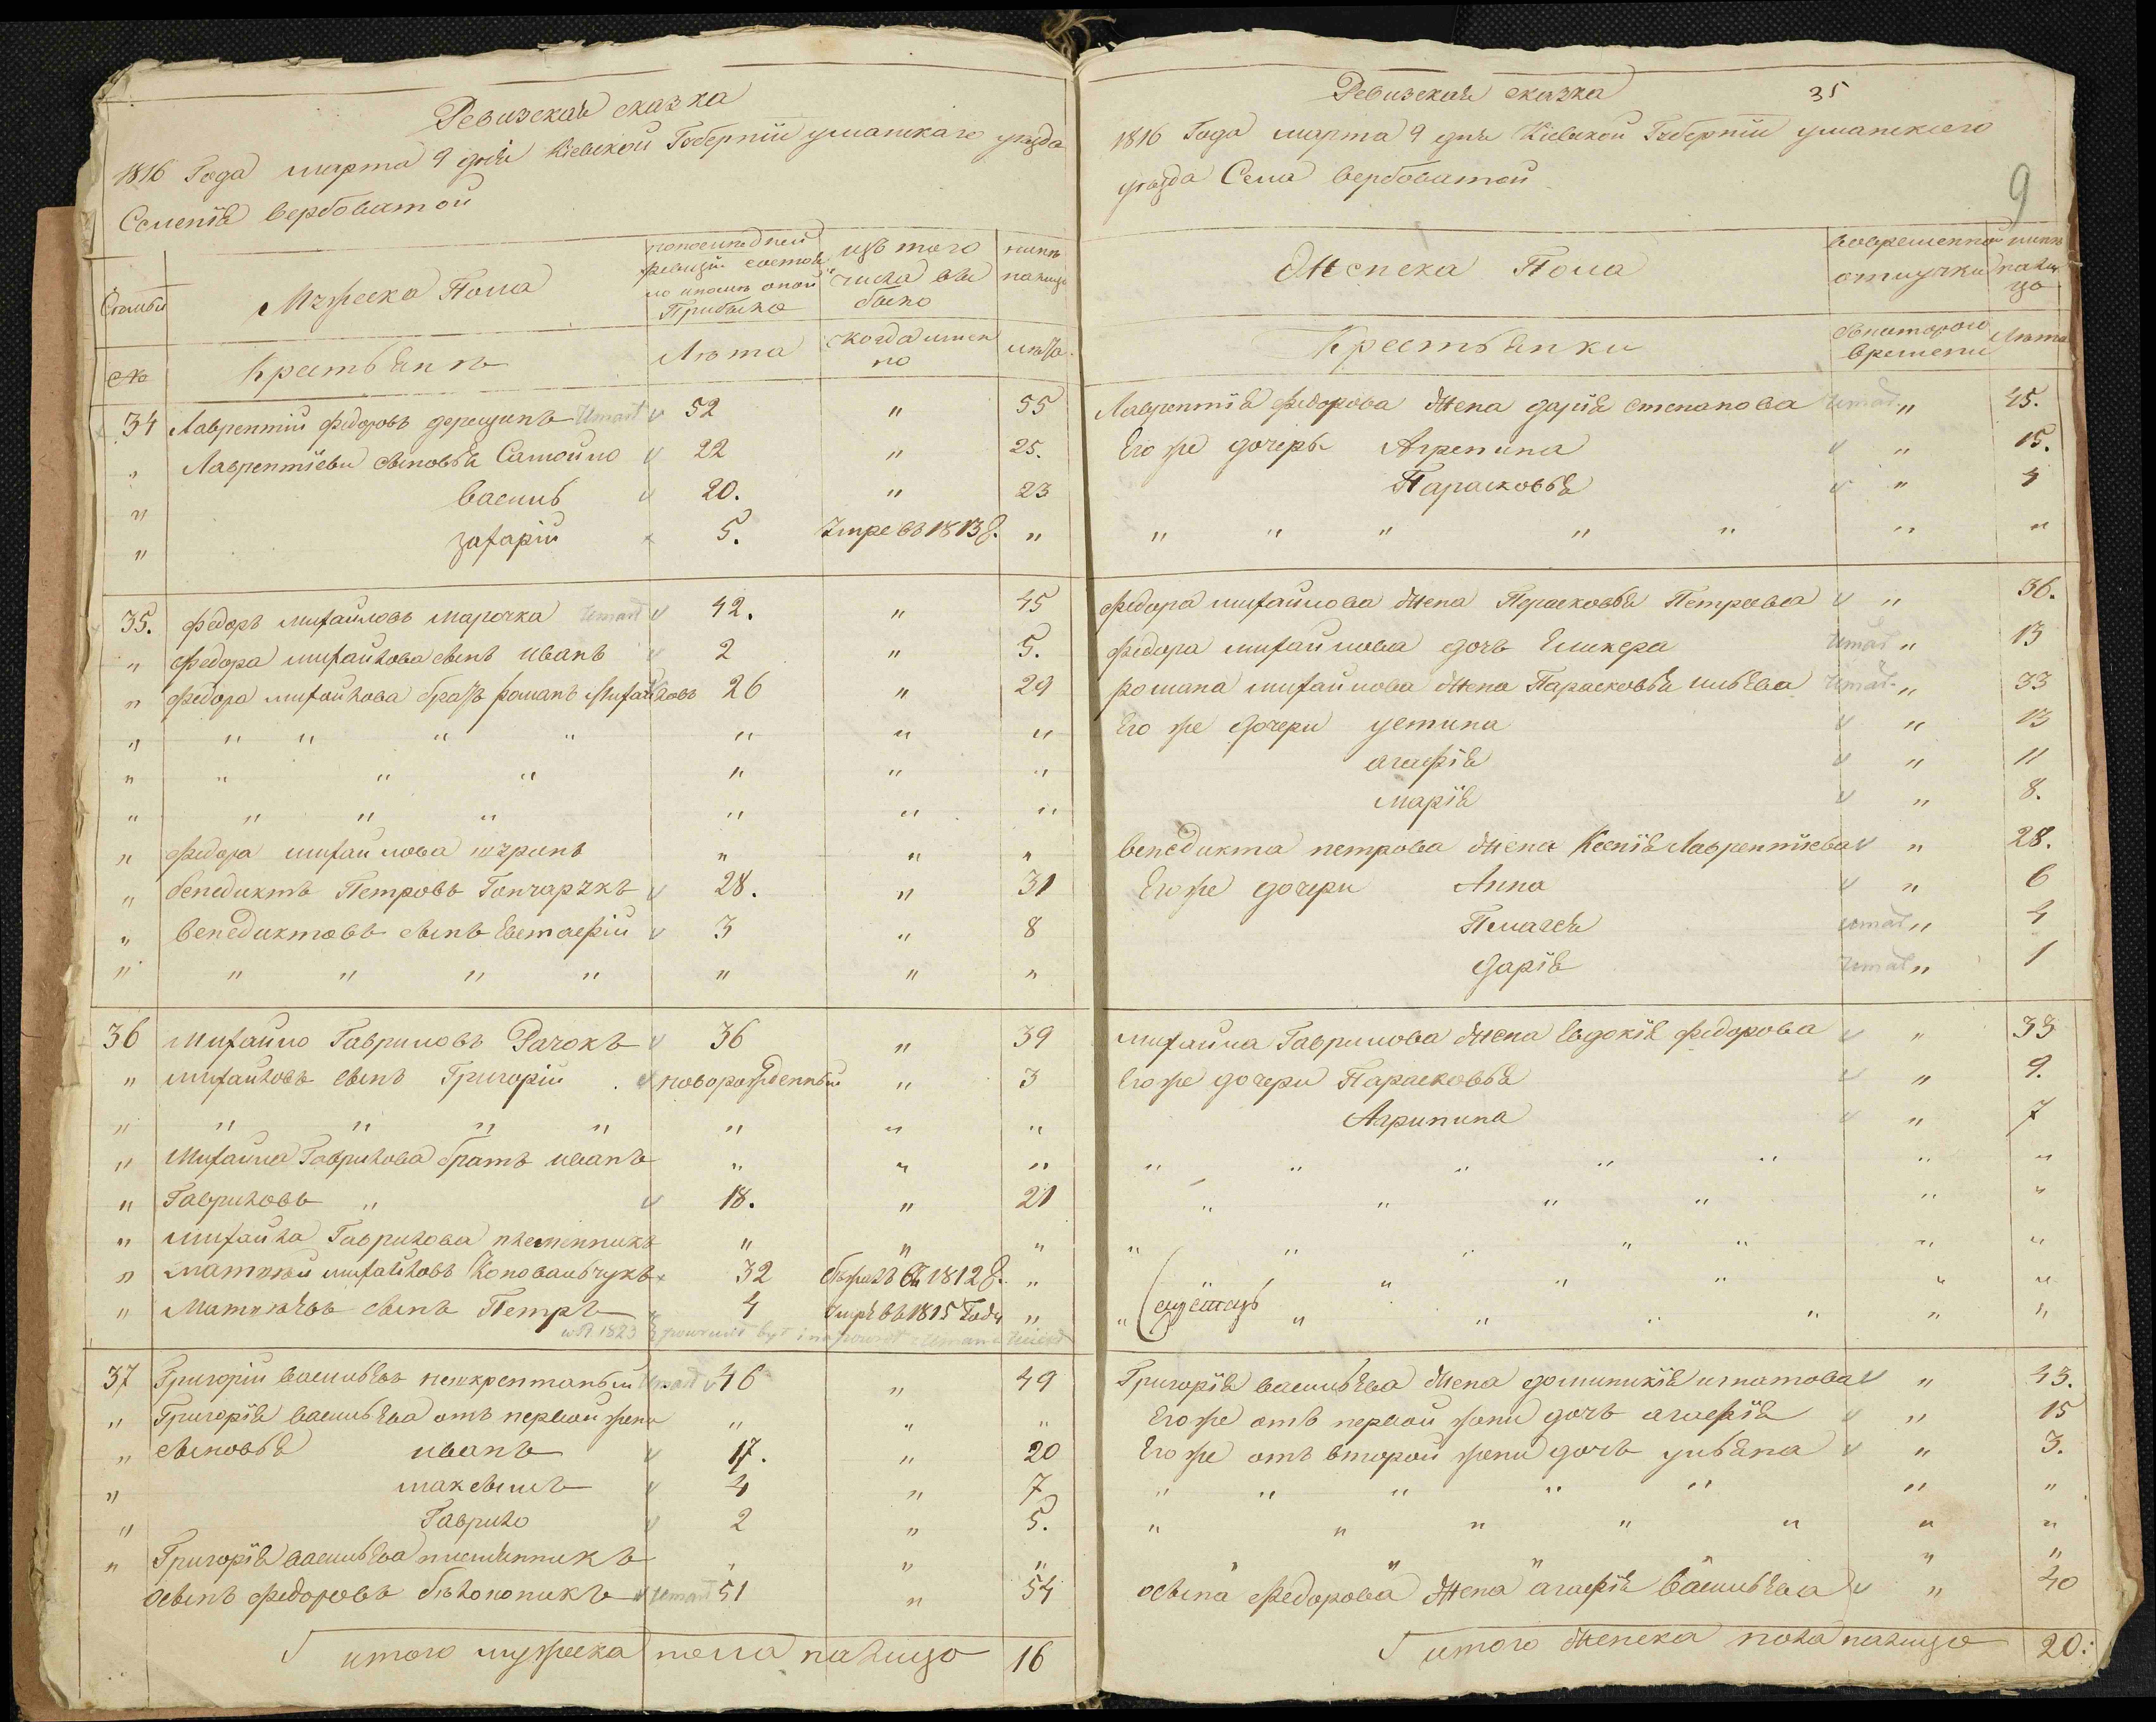 Ревизская сказка
1816 Года марта 9 дня Кіевской Губерніи уманскаго уезда
Селенія вербоватой
Семьи
Мужеска Пола
попоследней ревизіи состояло ипосле оной Прибыло
изъ того числа выбыло
ныне налицо
№
Крестьянъ
Лета
когда именно
лета
34 Лаврентій федоровъ Umarł 52 " 55
" Лаврентіеви сыновья Самойло 22 " 25.
" василь 20. " 23
" захарій 5. Умре въ 1813 г. "
35. федоръ михайловъ марочка Umarł 42. " 45
" федора михайлова сынъ иванъ 2 " 5.
" федора михайлова братъ романъ михайловъ 26 " 29
" " " " " " " "
" " " " " " "
" " " " " " "
" федора михайлова шуринъ " " "
" бенедиктъ Петровъ Гончарукъ 28. " 31
" венедиктовъ сынъ Евстафій 3 " 8
" " " " " " " "
36 михайло Гавриловъ Рачокъ 36 " 39
" михайловъ сынъ Григорій новорожденный " 3
" " " " " " " "
" Михайла Гаврилова братъ иванъ " " "
" Гавриловъ " 18. " 21
" михайла Гаврилова племенникъ " " "
" матвій михайловъ Коновальчукъ 32 бежалъ въ 1812 г. "
" Матвіевъ сынъ Петръ 4 Умре въ 1815 Году "
w R. 1823 powrócił był i na powrót z Umania uciekł
37 Григорій васильевъ некрептаный Umarł 46 " 49
" Григорія васильева отъ первой жены " " "
" сыновья иванъ 17. " 20
" максымъ 4 " 7
" Гаврило 2 " 5.
" Григорія васильева племянникъ " " "
осыпъ федоровъ белоконикъ Umarł 51 " 54
итого мужеска пола налицо 16
Ревизская сказка 35
1816 Года марта 9 дня Кіевской Губерніи уманскаго
уезда Села вербоватой
9
Женска Пола
вовременной отлучки
ныне налицо
Крестьянки
съкотораго времени
Лета
Лаврентія федорова жена дарія степанова Umarł " 45.
Его же дочеры Агрепина " 15.
Парасковья " 4
" " " " " " "
федора михайлова жена Парасковья Петрова " 36.
федора михайлова дочь Гликера Umarł " 13
романа михайлова жена Парасковья ильева Umarł " 33
Его же дочери устина " 13
агафія " 11
марія " 8.
венедикта петрова жена Ксенія Лаврентіева " 28.
Его же дочери Анна " 6
Пелагея umarł " 4
дарія Umarł " 1
михайла Гаврилова жена евдокія федорова " 33
Его же дочери Парасковья " 9.
Агрипина " 7
" " " " " " "
" " " " " "
" " " " " " "
" " " " "
" " " " " " "
Григорія васильева жена доминикія игнатова " 43.
Его же отъ первой жены дочь агафія " 15
Его же отъ второй жены дочь ульяна " 3.
" " " " " " "
" " " " " " "
" " " " "
осыпа федорова жена агафія васильева " 40
итого женска пола налицо 20.